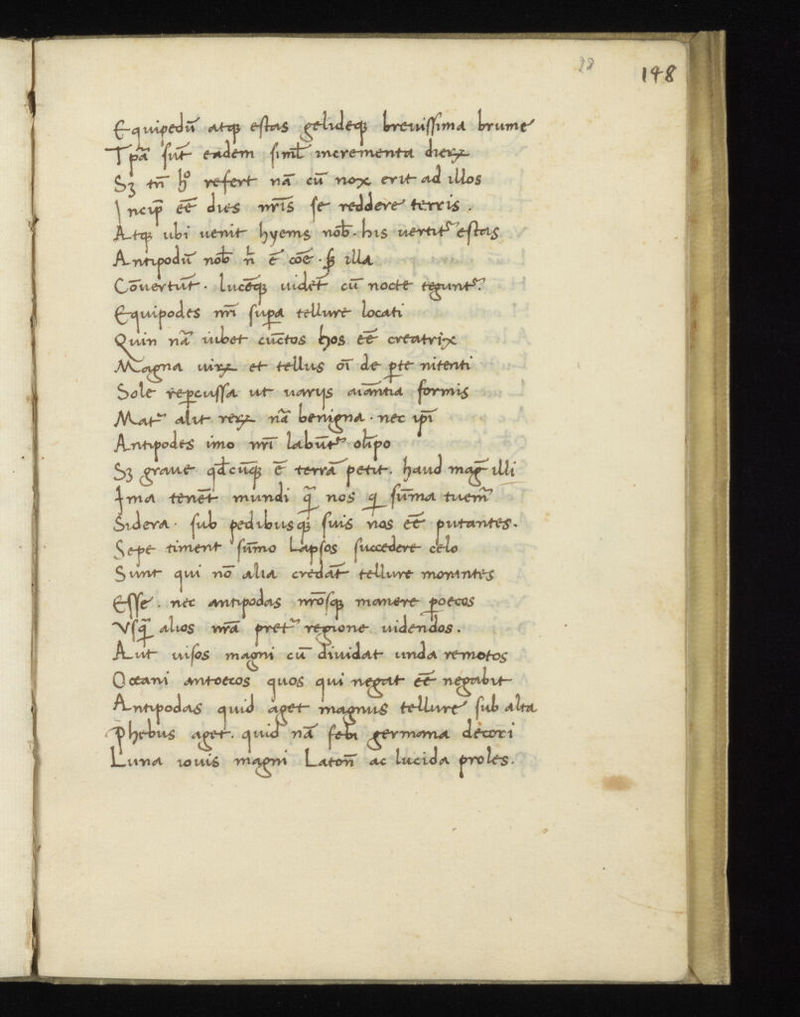 28
148
Equipedū atq; estas gelideq; breuissima brume
Tp̄a sūt eadem siml̄ incrementa dierꝝ
Sꝫ tn̄ h̊ refert nā cū nox erit ad illos
Incip̄ eē dies nr̄is se reddere terris .
Atq; ubi uenit hyems nob̄ . his uertit᷑ estas
Antipodū nob̄ n̄ ē cōe . illa
Cōuertūt . lucēq; uidēt cū nocte tegunt᷑ .
Equipodes nr̄i sup̄a tellure locati
Quin nā iubet cūctos hos eē creatrix
Magna uirꝝ et tellus oī de ꝑte nitenti
Sole reꝑcussa ut uariis aiāntia formis
Mat᷑ alit rerꝝ nā benigna . nec ip̄i
Antipodes imo nr̄i labūt᷑ olīpo
Sꝫ graue qd̄cūq; ē terrā petit . haud maḡ illi
Ima tenēt mundi q̄ nos q sūma tuem᷑
Sidera . sub pedibusq; suis nos eē putantes .
Sepe timent sūmo lapsos succedere celo
Sunt qui nō alia credāt tellure morantes
Esse . nec antipodas nr̄osq; manere ꝑoecos
Vsq̄ alios nr̄a pret᷑ regione uidendos .
Aut uisos magni cū diuidat unda remotos
Oceani antoecos quos qui negat eē negabit
Antipodas quid aget magnus tellure sub alta
Phebus aget . quid nā febi germana decori
Luna iouis magni Laton̄ ac lucida proles .